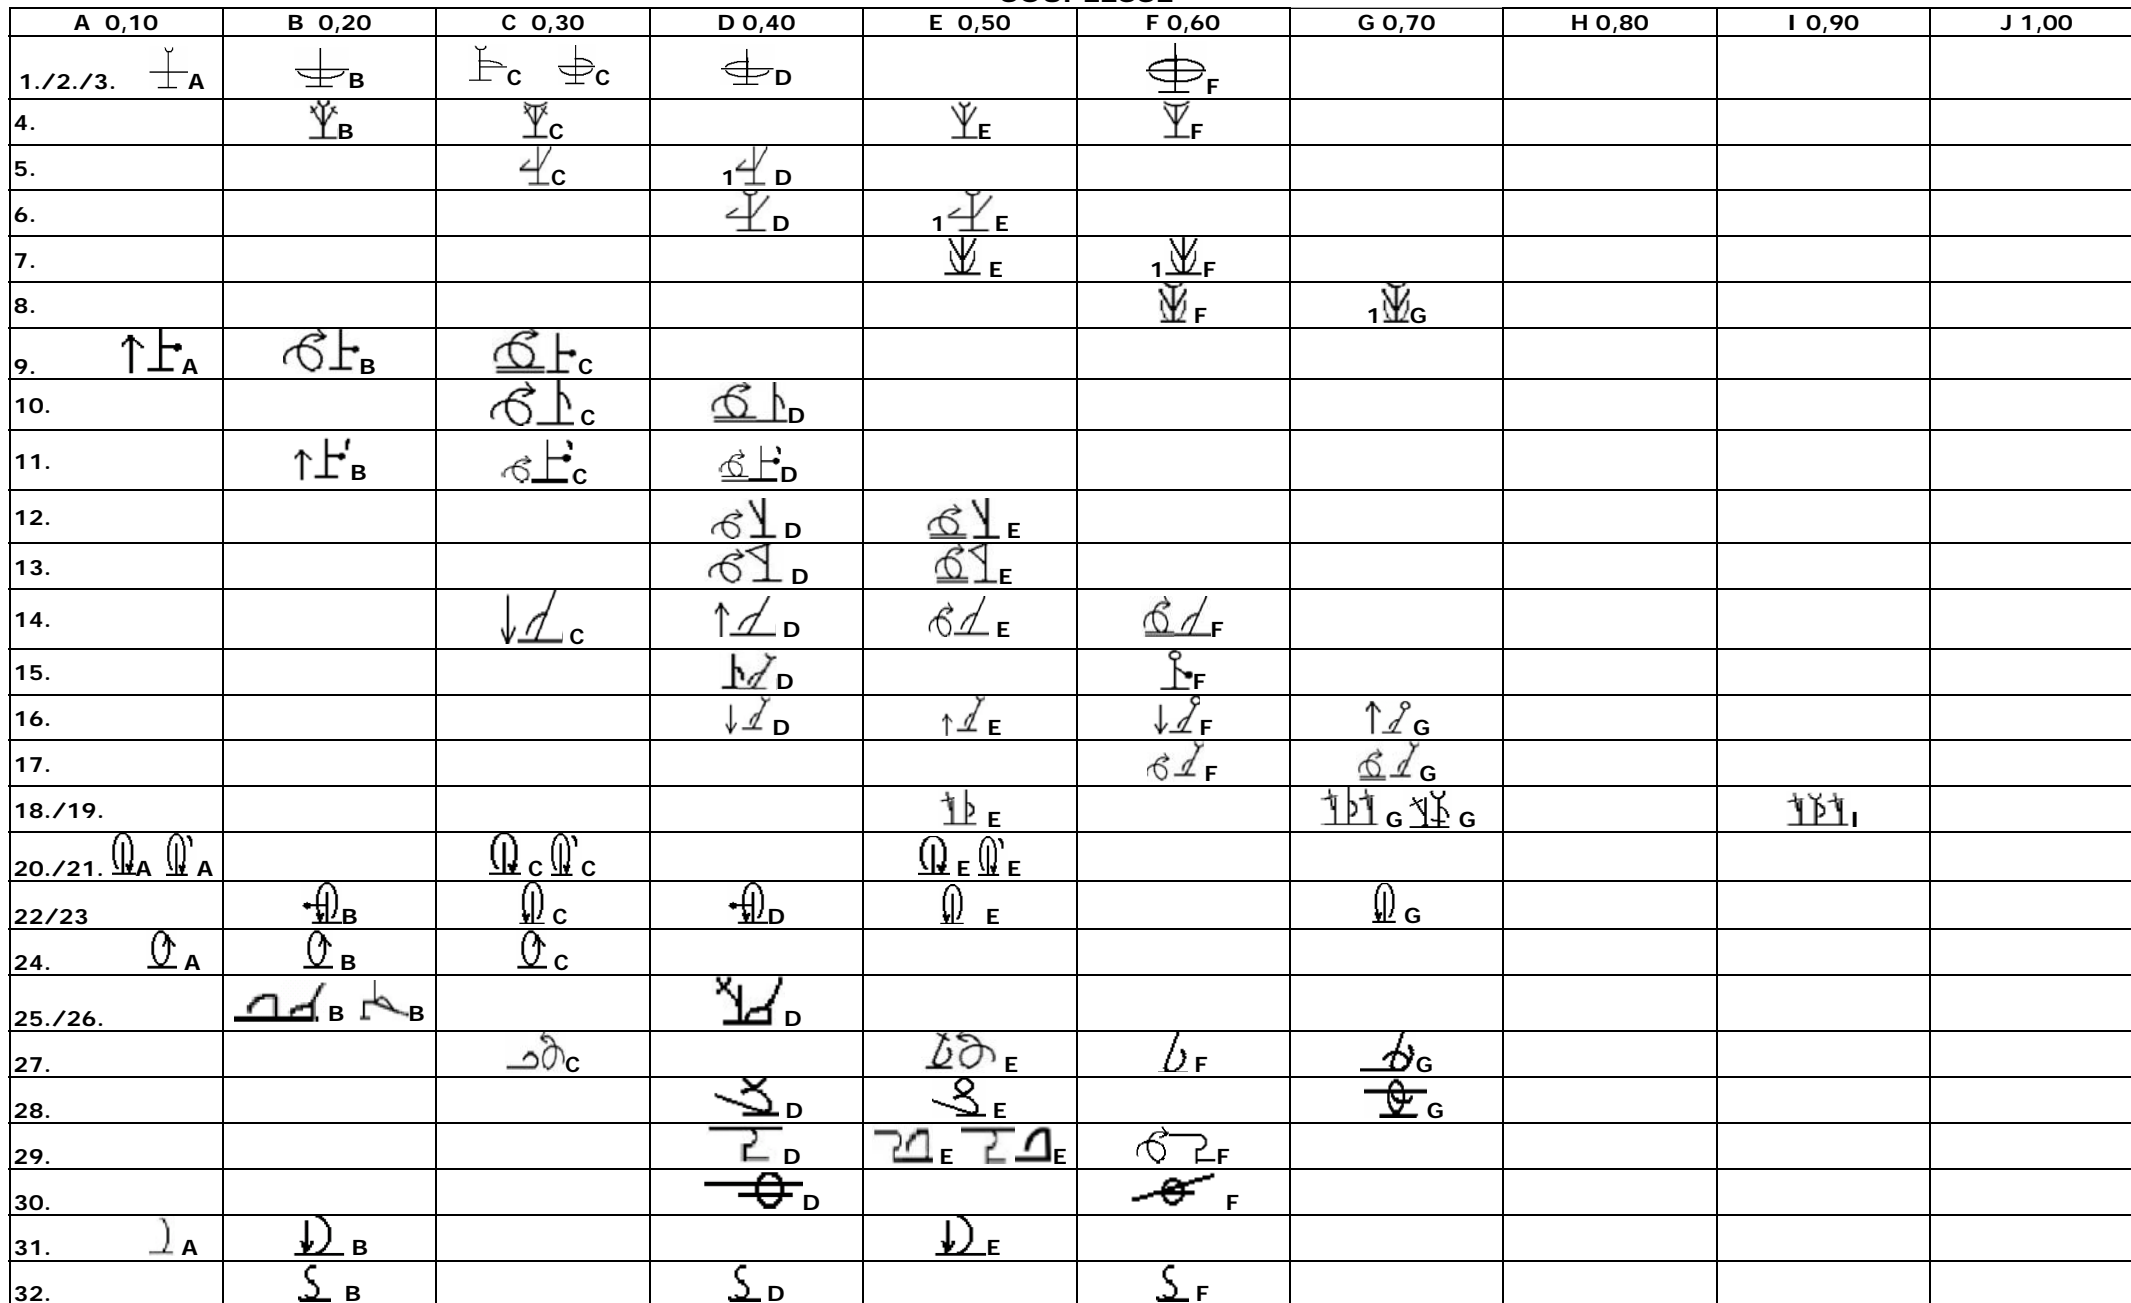 A 0,10 B 0,20 C 0,30 D 0,40 E 0,50 F 0,60 G 0,70 H 0,80 I 0,90 J 1,00
1./2./3. A B C C D F
4. B C E F
5. C 1 D
6. D 1 E
7. E 1 F
8. F 1 G
9. A B C
10. C D
11. B C D
12. D E
13. D E
14. C D E F
15. D F
16. D E F G
17. F G
18./19. E G G I
20./21. A A C C E E
22/23 B C D E G
24. A B C
25./26. B B D
27. C E F G
28. D E G
29. D E E F
30. D F
31. A B E
32. B D F